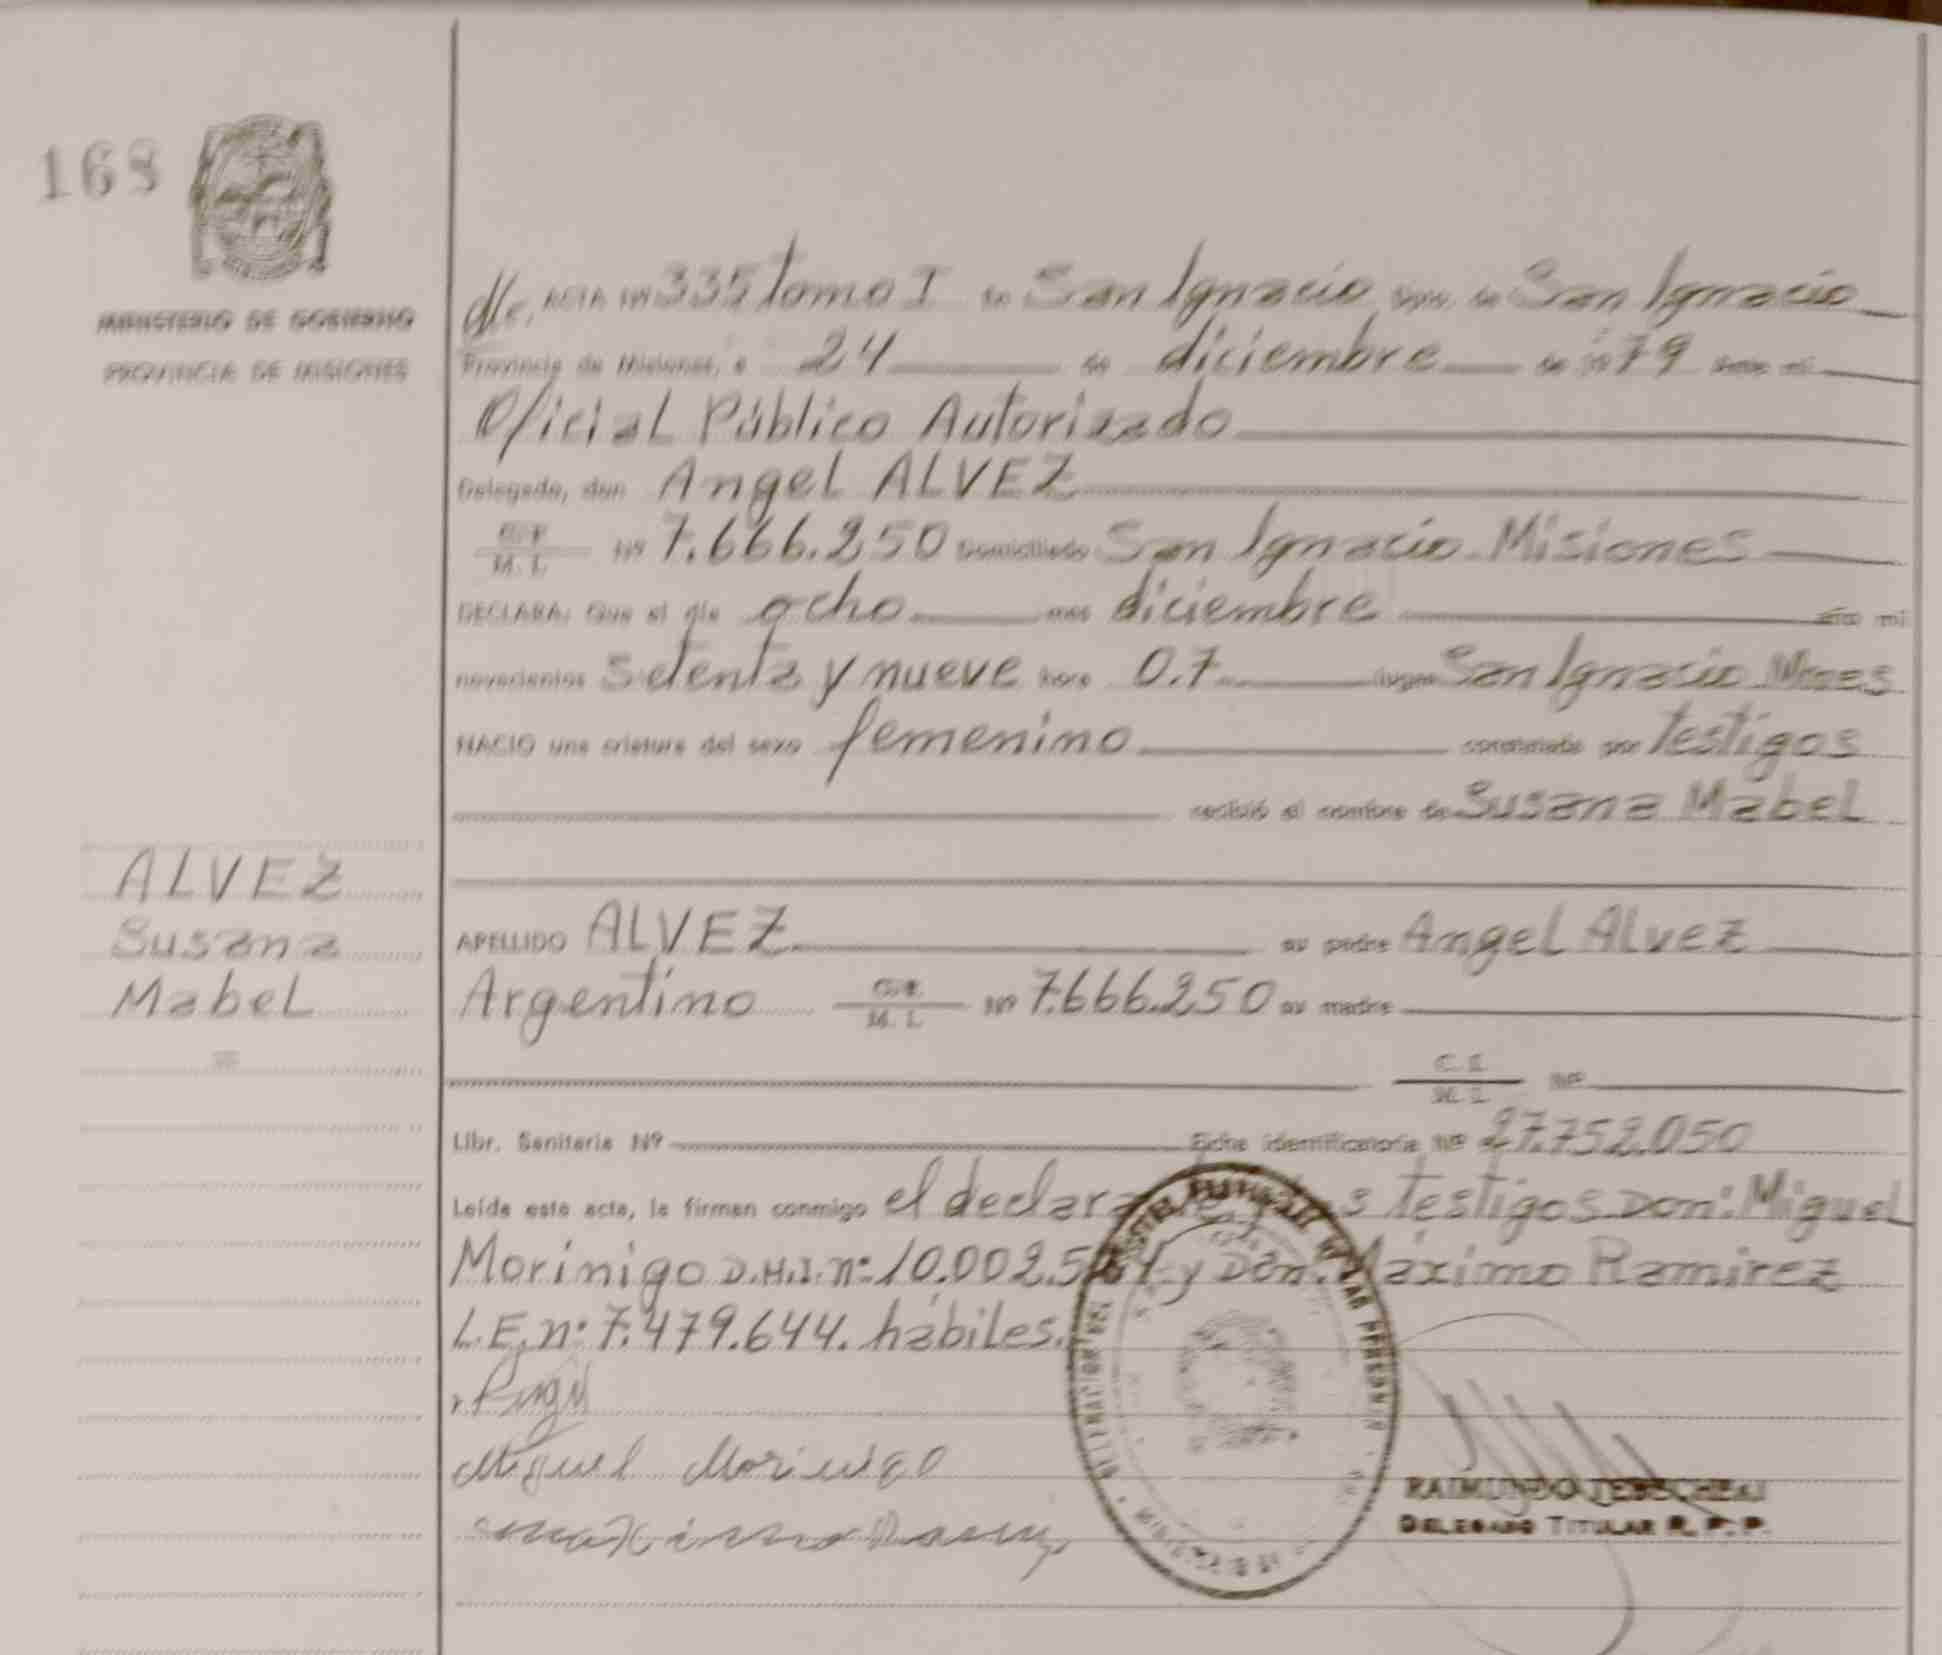 168
MINISTERIO DE GOBIERNO
PROVINCIA DE MISIONES
ACTA Nº 335 tomo I En San Ignacio Dpto. de San Ignacio
Provincia de Misiones, a 24 de diciembre de 1979 ante mí
Oficial Público Autorizado
Delegado, don Angel ALVEZ
M. I. Nº 7.666.250 Domiciliado San Ignacio Misiones
DECLARA: Que el día ocho mes diciembre año mil
novecientos setenta y nueve hora 0.7 lugar San Ignacio Mnes
NACIO una criatura del sexo femenino constatado por testigos
recibió el nombre de Susana Mabel
ALVEZ
Susana
Mabel
APELLIDO ALVEZ su padre Angel Alvez
Argentino C.I. M. I. Nº 7.666.250 su madre
C. I. M. I. Nº
Libr. Sanitaria Nº Ficha identificatoria Nº 27.752.050
Leída este acta, la firman conmigo el testigos Don: Miguel
Morinigo D.N.I. nº: 10.002. y Don: Máximo Ramirez
L.E. nº: 7.479.644. hábiles.
Miguel Morinigo
RAIMUNDO
DELEGADO TITULAR R. P. P.